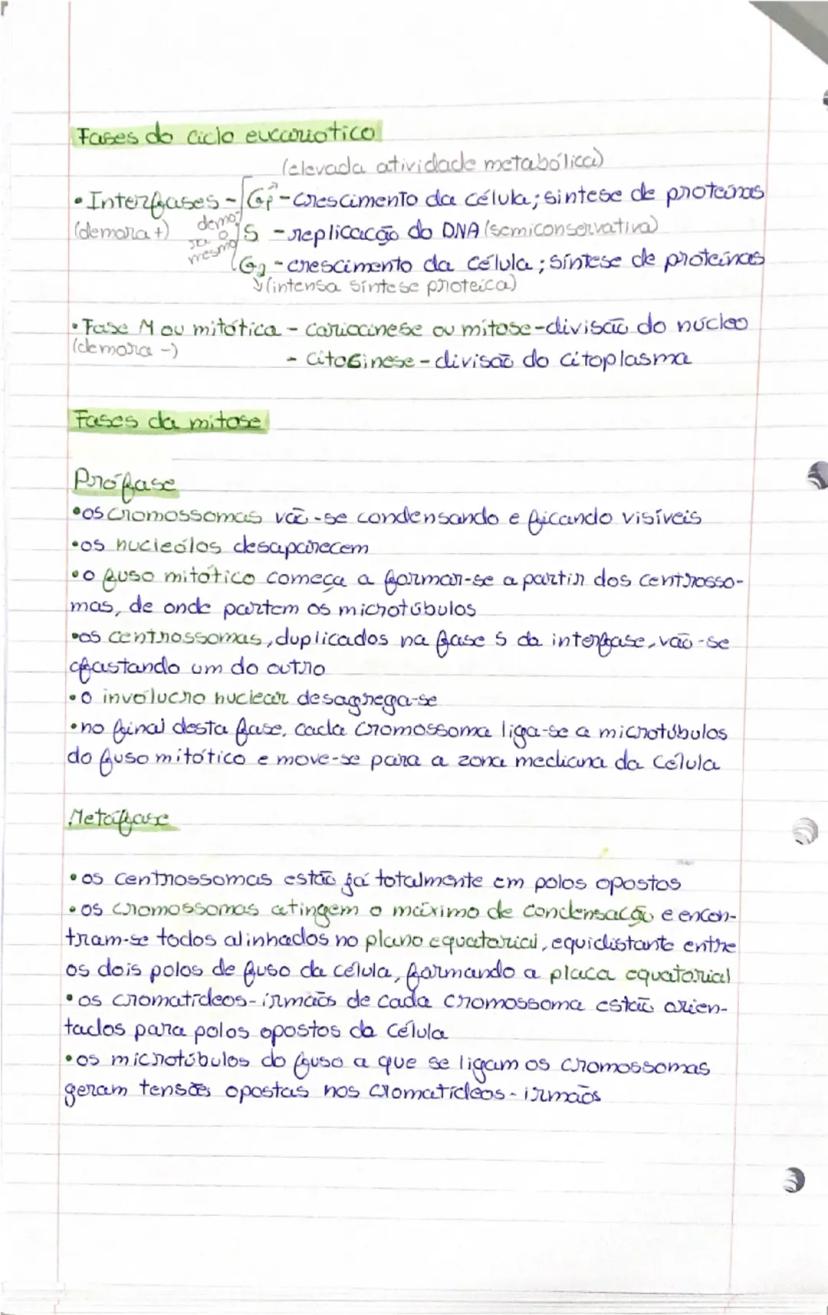 Fases do ciclo eucariotico
(elevada atividade metabólica)
• Interfases - G1 - crescimento da célula; sintese de proteínas
(demora +) demora o mesmo S - replicação do DNA (semiconservativa)
G2 - crescimento da célula; síntese de proteínas
↓(intensa síntese proteica)
• Fase M ou mitótica - cariocinese ou mitose - divisão do núcleo
(demora -) - citocinese - divisão do citoplasma
Fases da mitose
Prófase
• os cromossomas vão-se condensando e ficando visíveis
• os nucleólos desaparecem
• o fuso mitótico começa a formar-se a partir dos centrosso-
mas, de onde partem os microtúbulos
• os centrossomas, duplicados na fase S da interfase, vão-se
afastando um do outro
• o involucro nuclear desagrega-se
• no final desta fase, cada cromossoma liga-se a microtúbulos
do fuso mitótico e move-se para a zona mediana da célula
Metáfase
• os centrossomas estão já totalmente em polos opostos
• os cromossomas atingem o máximo de condensação e encon-
tram-se todos alinhados no plano equatorial, equidistante entre
os dois polos de fuso da célula, formando a placa equatorial
• os cromatídeos-irmãos de cada cromossoma estão orien-
tados para polos opostos da célula
• os microtúbulos do fuso a que se ligam os cromossomas
geram tensões opostas nos cromatídeos-irmãos